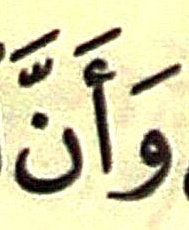 وَأَنَّ